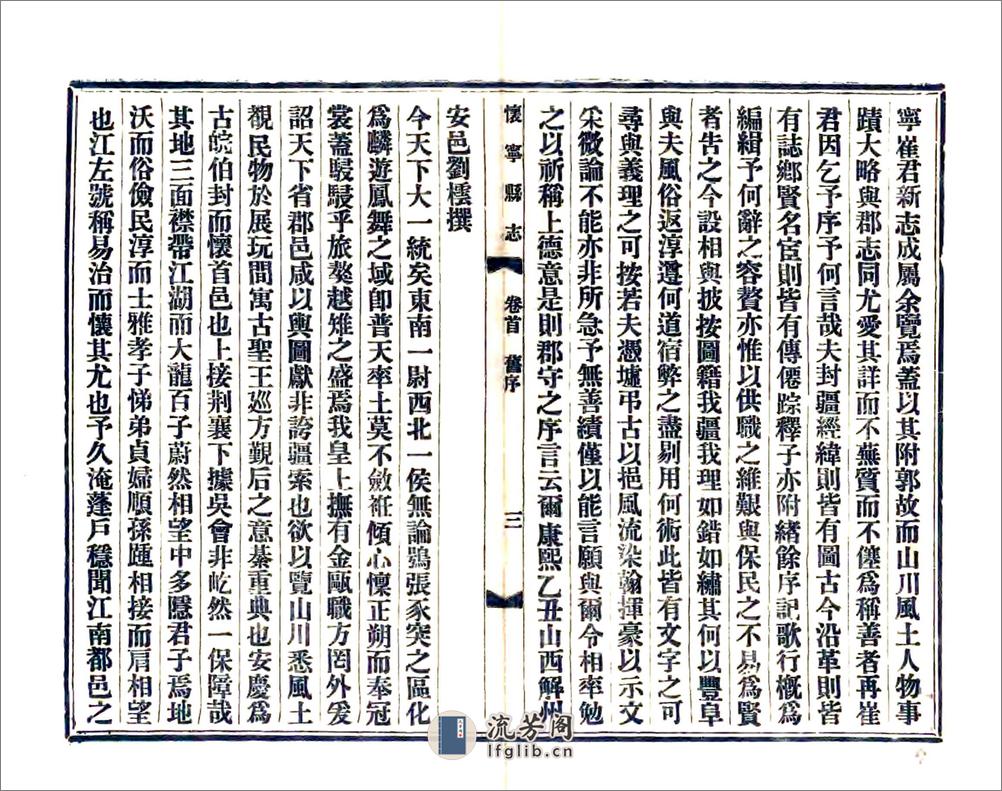 寧崔君新志成屬余覽焉蓋以其附郭故而山川風土人物事
蹟大略與郡志同尤愛其詳而不蕪質而不僿爲稱善者再崔
君因乞予序予何言哉夫封疆經緯則皆有圖古今沿革則皆
有誌鄉賢名宦則皆有傳僊踪釋子亦附緒餘序記歌行概爲
編緝予何辭之容贅亦惟以供職之維艱與保民之不易爲賢
者告之今設相與披按圖籍我疆我理如錯如繡其何以豐阜
與夫風俗返淳遵何道宿弊之盡剔用何術此皆有文字之可
尋與義理之可按若夫憑墟弔古以挹風流染翰揮豪以示文
采微論不能亦非所急予無善績僅以能言願與爾令相率勉
之以祈稱上德意是則郡守之序言云爾康熙乙丑山西解州
安邑劉橒撰
懷寧縣志 卷首 舊序 三
今天下大一統矣東南一尉西北一侯無論鴞張豕突之區化
爲麟遊鳳舞之域卽普天率土莫不斂袵傾心懍正朔而奉冠
裳蓋駸駸乎旅獒越雉之盛焉我皇上撫有金甌職方罔外爰
詔天下省郡邑咸以輿圖獻非誇疆索也欲以覽山川悉風土
觀民物於展玩間寓古聖王巡方覲后之意綦重典也安慶爲
古皖伯封而懷首邑也上接荆襄下據吳會非屹然一保障哉
其地三面襟帶江湖而大龍百子蔚然相望中多隱君子焉地
沃而俗儉民淳而士雅孝子悌弟貞婦順孫踵相接而肩相望
也江左號稱易治而懷其尤也予久淹蓬戶穩聞江南都邑之
流芳阁
lfglib.cn